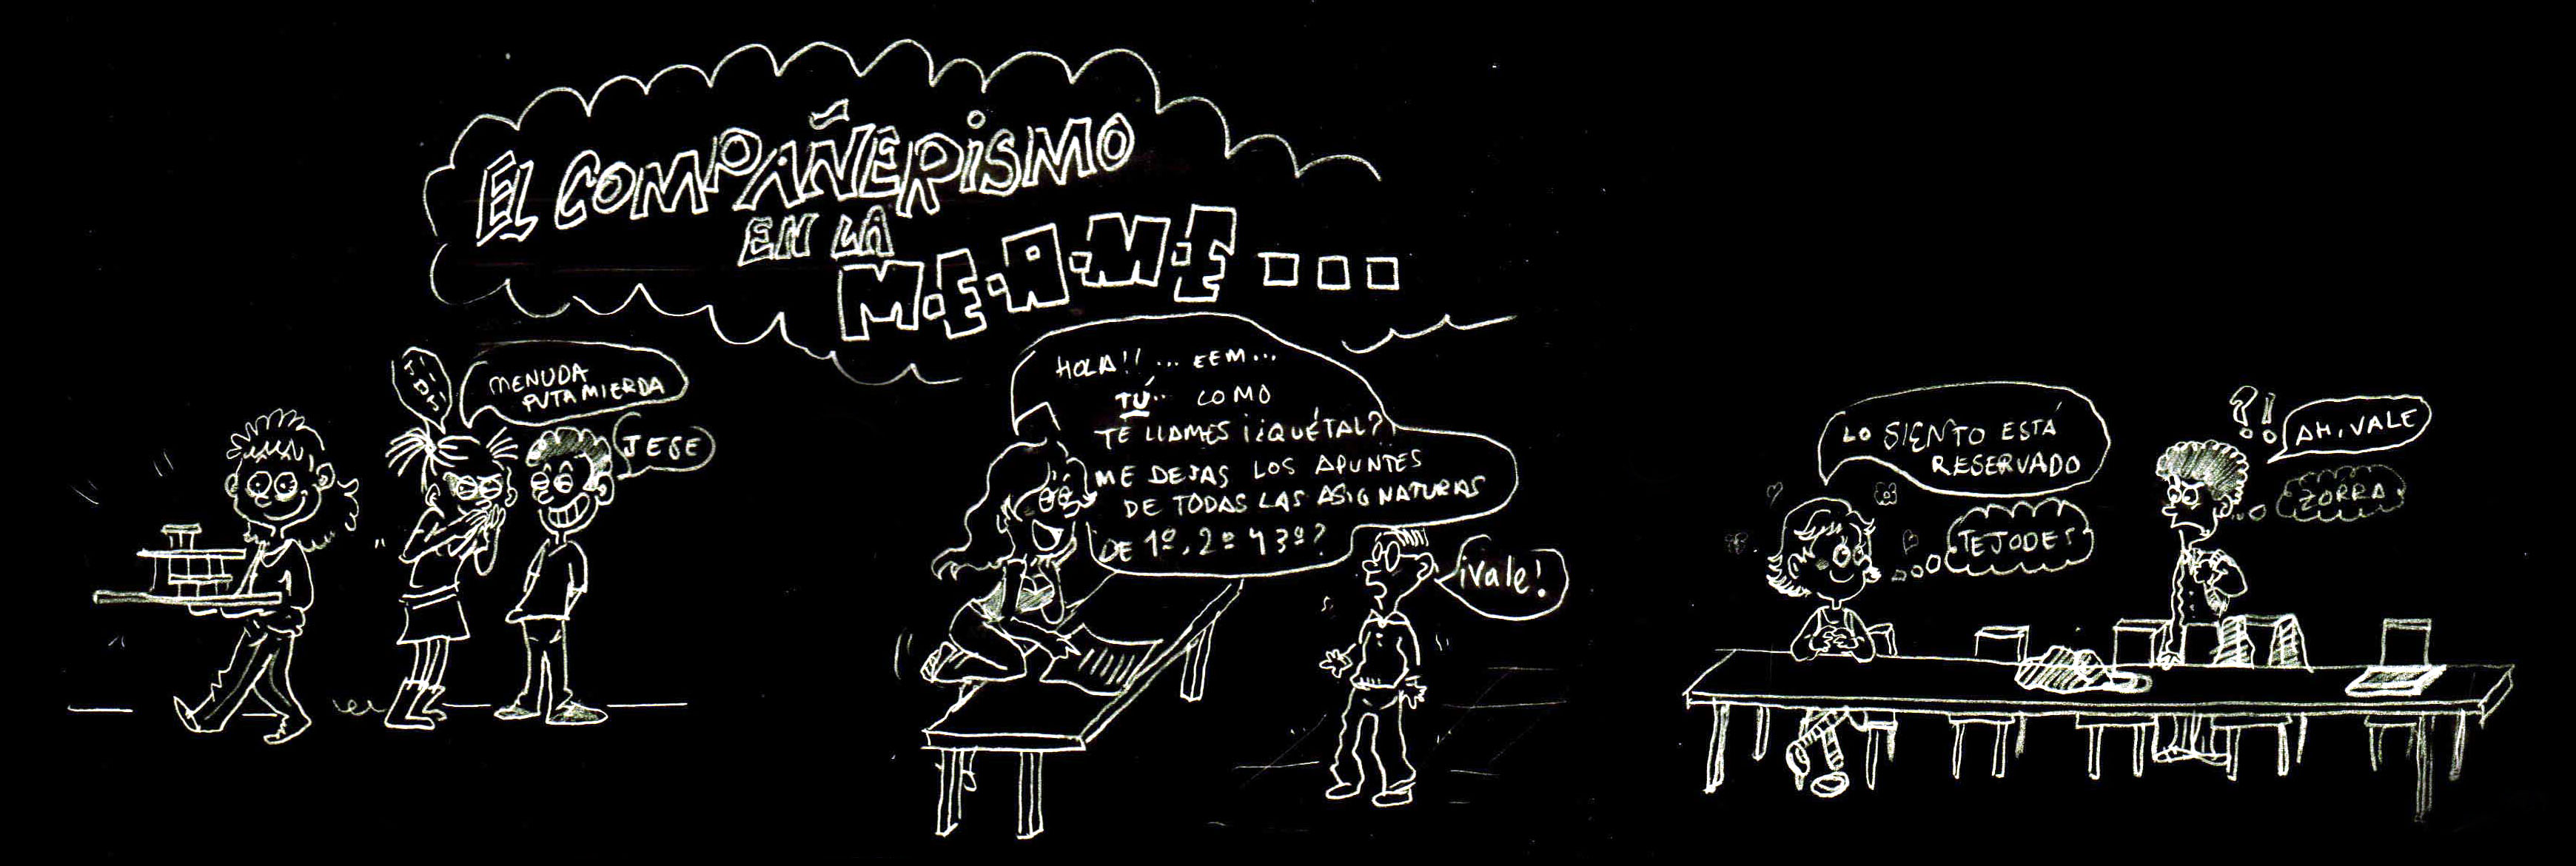 EL COMPAÑERISMO
EN LA
M.E.A.M.E...
JI
JI
JI
MENUDA
PUTA MIERDA
JEJE
HOLA!! ... EEM...
TÚ.. COMO
TE LLAMES ¡¿QUÉTAL?!
ME DEJAS LOS APUNTES
DE TODAS LAS ASIGNATURAS
DE 1º, 2º Y 3º?
¡vale!
LO SIENTO ESTÁ
RESERVADO
TEJODES
?!
AH, VALE
ZORRA